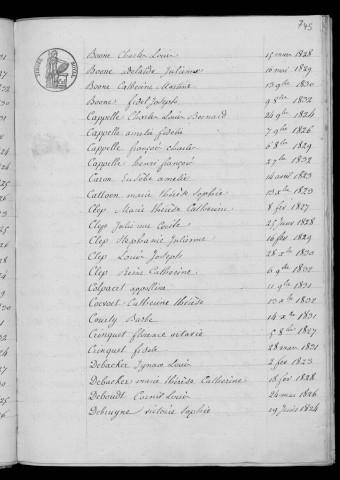 745
TIMBRE ROYAL
Boone Charles Louis 15 mars 1828
Boone Adelaïde Julienne 10 mai 1829
Boone Catherine 13 9bre 1830
Boone fidel Joseph 9 8bre 1832
Cappelle Charles Louis Bernard 24 9bre 1824
Cappelle amelie fidelle 7 9bre 1826
Cappelle françois charles 6 8bre 1829
Cappelle henri françois 27 9bre 1832
Caron Eusèbe amelie 14 avril 1823
Cattoen marie thérèse Sophie 13 xbre 1823
Clep Marie thérèse Catherine 8 fév 1827
Clep Julienne Cécile 25 1828
Clep Stephanie Julienne 16 fév 1829
Clep Louis Joseph 28 xbre 1830
Clep Reine Catherine 6 9bre 1832
Colpaert appolline 11 9bre 1831
Cocvoet Catherine thérèse 10 xbre 1832
Courty Barbe 14 xbre 1831
Crinquet florence octavie 5 8bre 1827
Crinquet fidele 28 mars 1831
Debacker Ignace Louis 2 fév 1823
Debacker marie thérèse Catherine 18 fév 1828
Deboudt Cornil Louis 24 mai 1826
Debruyne victoire Sophie 29 1824